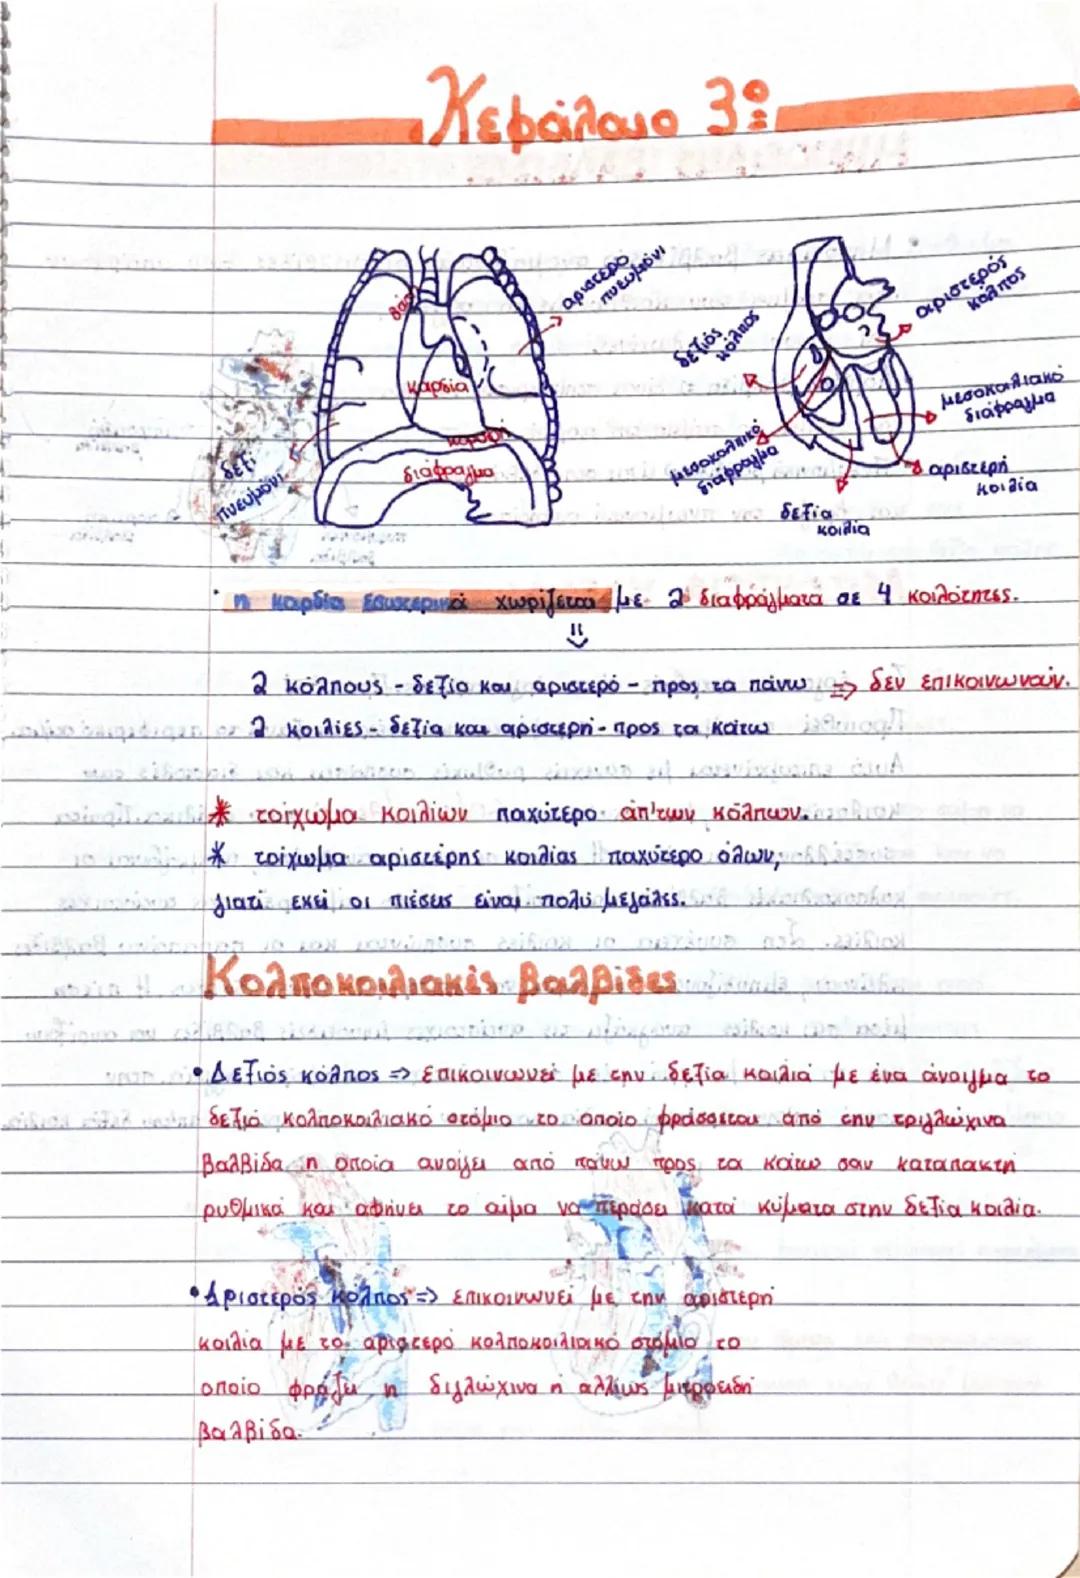 Κεφάλαιο 3ο
αριστερό
πνευμόνι
καρδία
κορυφή
διάφραγμα
δεξί
πνευμόνι
δεξιός
κόλπος
αριστερός
κόλπος
μεσοκοιλιακό
διάφραγμα
μεσοκολπικό
διάφραγμα
αριστερή
κοιλία
δεξία
κοιλία
• η καρδία εσωτερικά χωρίζεται με 2 διαφράγματα σε 4 κοιλότητες.
2 κόλπους - δεξίο και αριστερό - προς τα πάνω => δεν επικοινωνούν.
2 κοιλίες - δεξία και αριστερή - προς τα κάτω
* τοίχωμα κοιλιών παχύτερο απ'των κόλπων.
* τοίχωμα αριστέρης κοιλίας παχύτερο όλων,
γιατί εκεί οι πιέσεις είναι πολύ μεγάλες.
Κολποκοιλιακές βαλβίδες
• Δεξιός κόλπος => επικοινωνεί με την δεξία κοιλιά με ένα άνοιγμα το
δεξιό κολποκοιλιακό στόμιο το οποίο φράσσεται από την τριγλώχινα
βαλβίδα η οποία ανοίγει από πάνω προς τα κάτω σαν καταπακτή
ρυθμικά και αφήνει το αίμα να περάσει κατά κύματα στην δεξία κοιλία.
• Αριστερός κόλπος => επικοινωνεί με την αριστερή
κοιλία με το αριστερό κολποκοιλιακό στόμιο το
οποίο φράζει η διγλώχινα ή αλλιώς μιτροειδή
βαλβίδα.